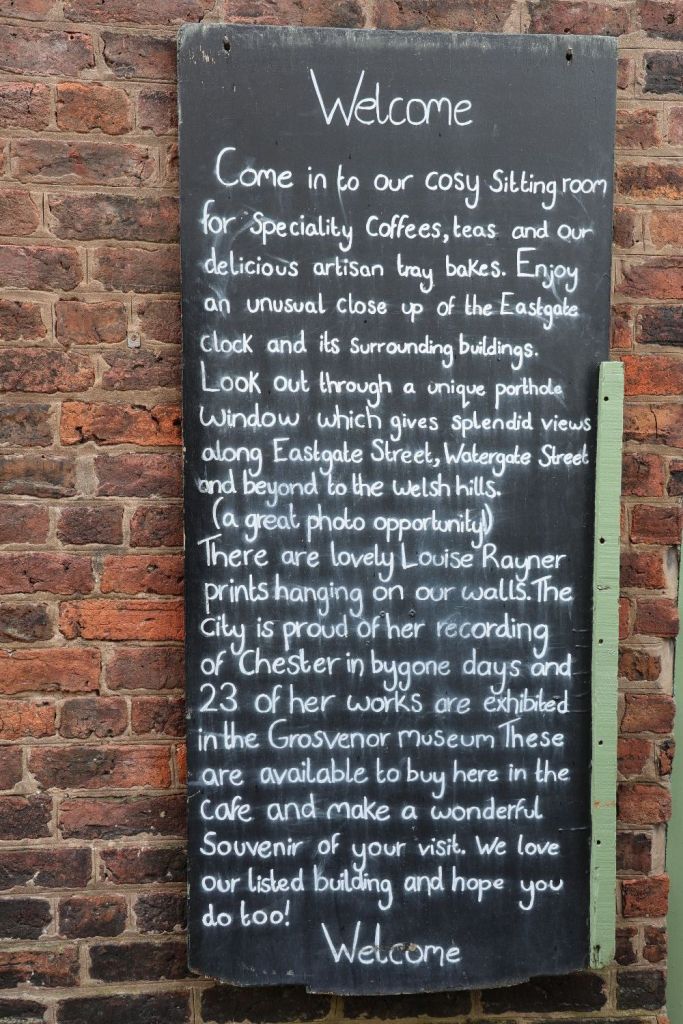 Welcome
Come in to our cosy Sitting room
for Speciality Coffees, teas and our
delicious artisan tray bakes. Enjoy
an unusual close up of the Eastgate
clock and its surrounding buildings.
Look out through a unique porthole
window which gives splendid views
along Eastgate Street, Watergate Street
and beyond to the welsh hills.
(a great photo opportunity!)
There are lovely Louise Rayner
prints hanging on our walls. The
City is proud of her recording
of Chester in bygone days and
23 of her works are exhibited
in the Grosvenor museum These
are available to buy here in the
Cafe and make a wonderful
Souvenir of your visit. We love
our listed building and hope you
do too!
Welcome